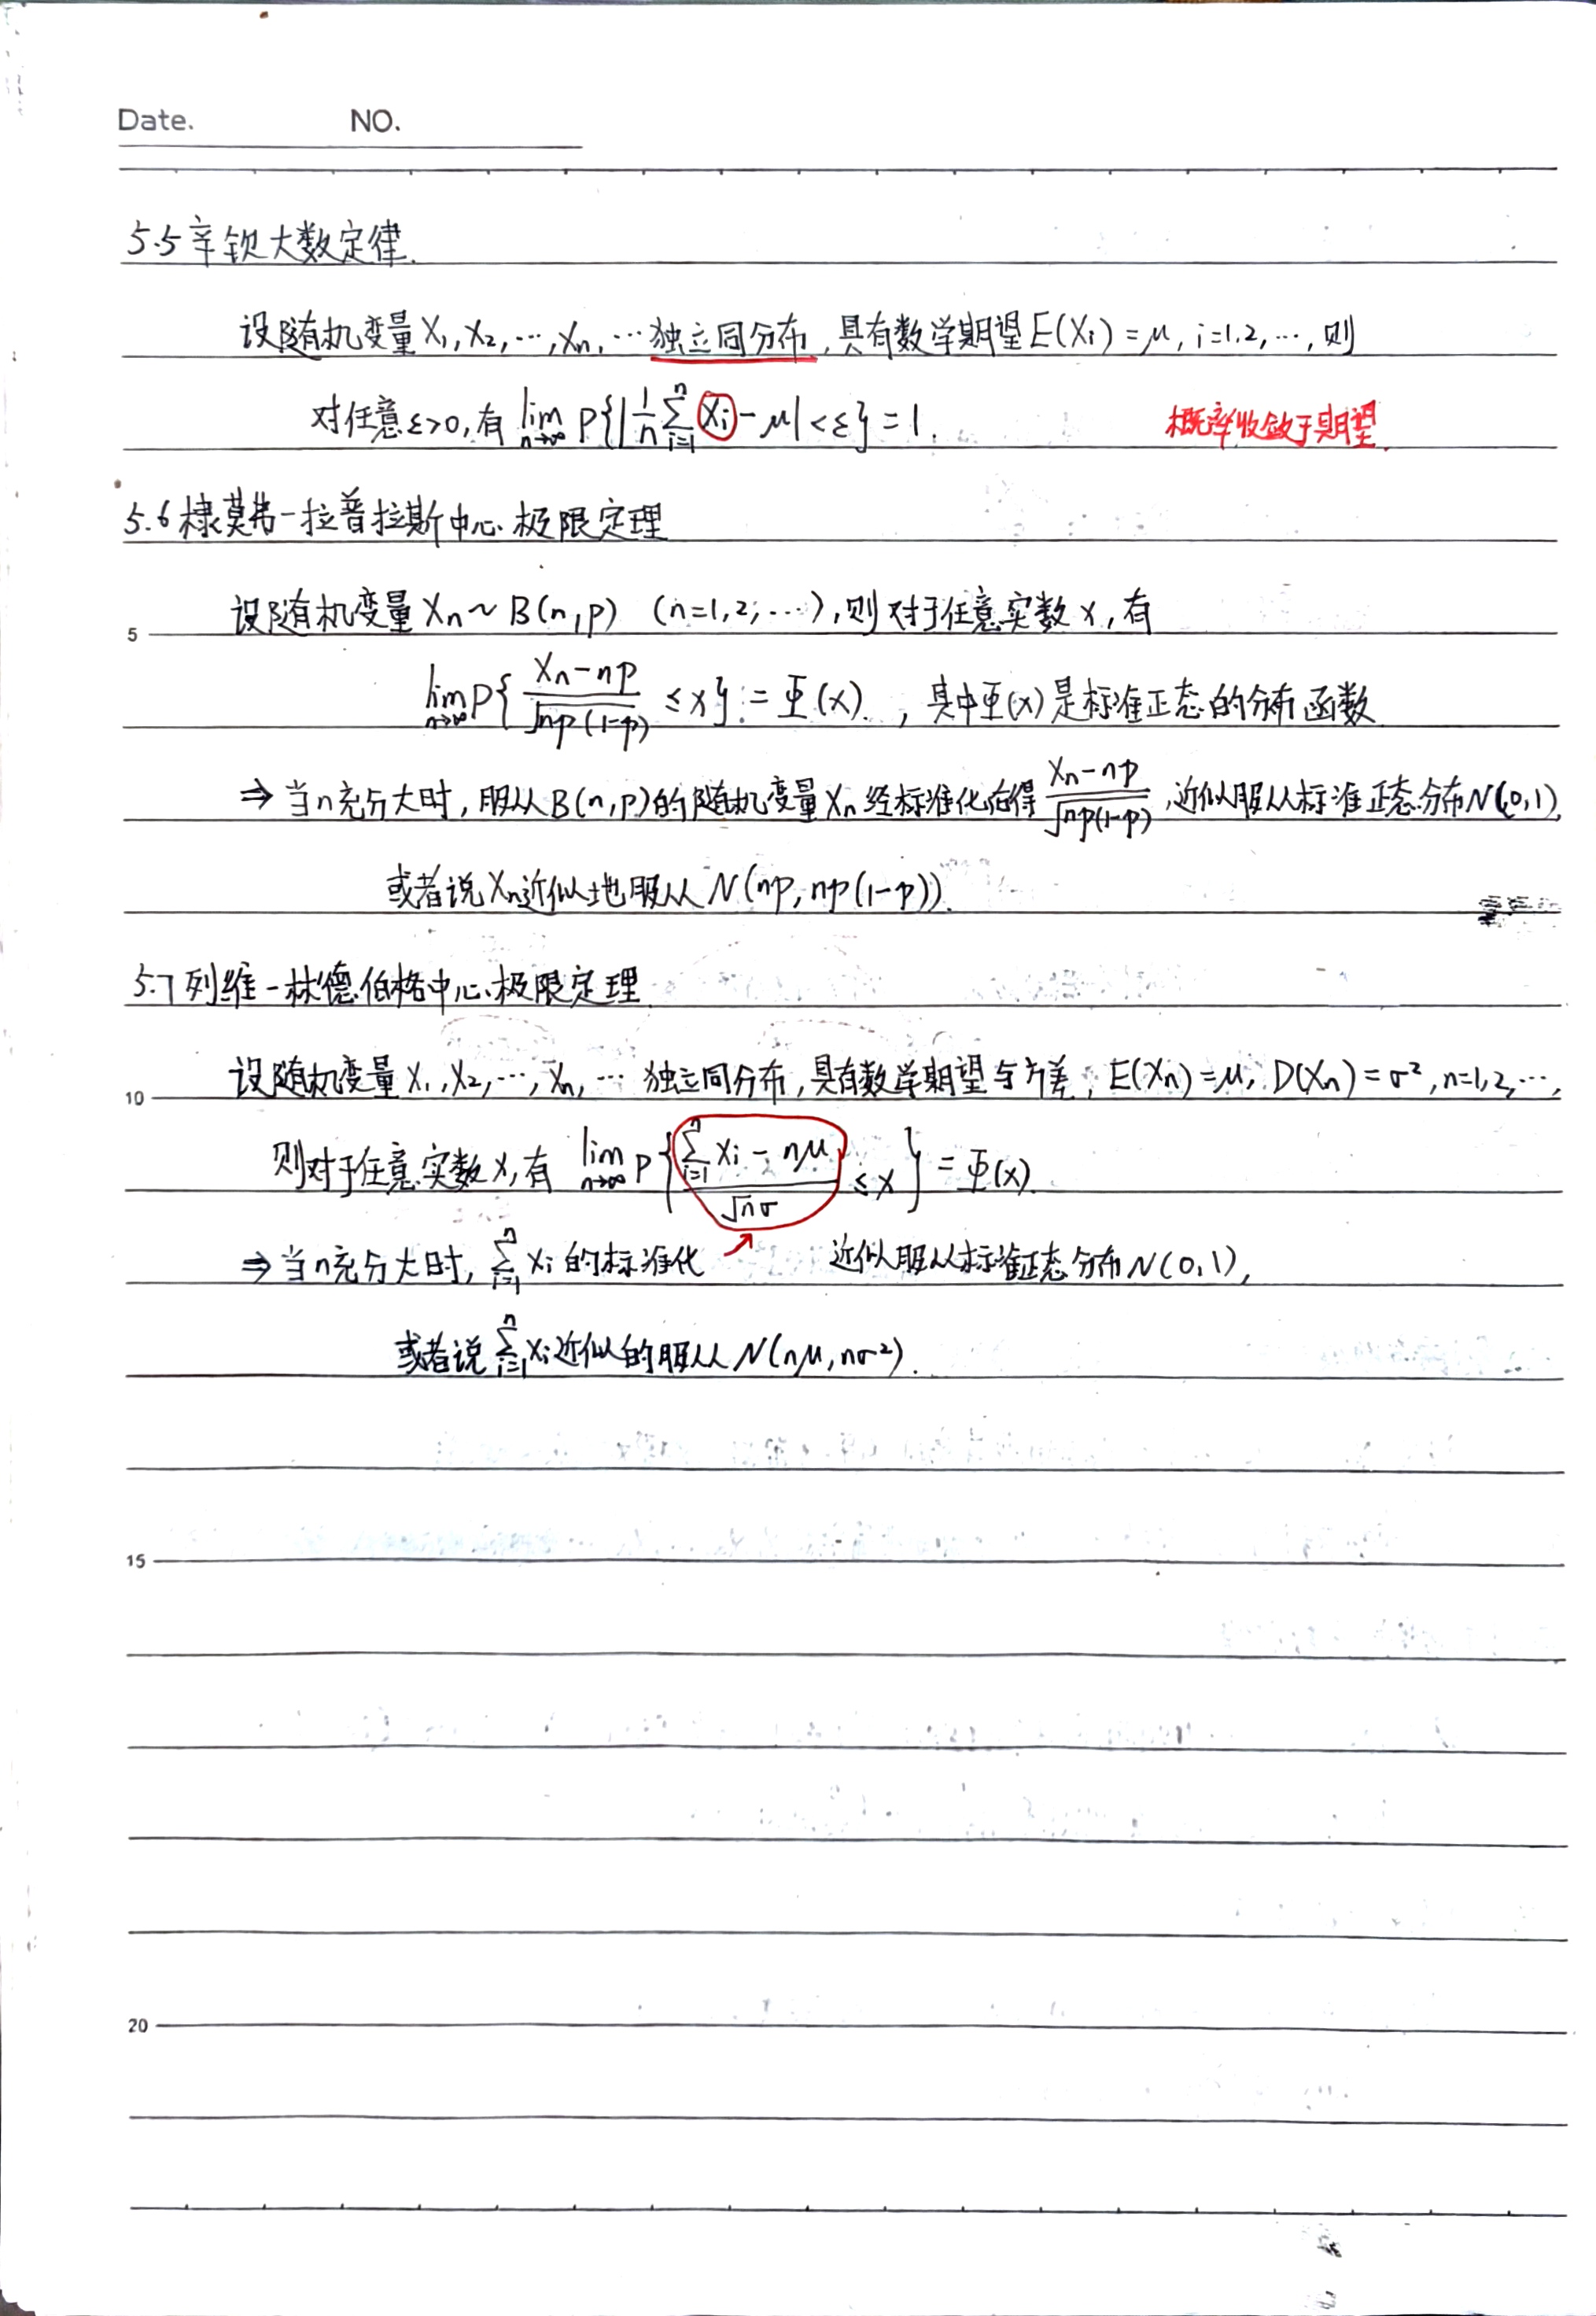 Date. NO.
5.5 辛钦大数定律.
设随机变量 X₁, X₂, ⋯, Xₙ, ⋯ 独立同分布, 具有数学期望 E(Xᵢ) = μ, i=1,2, ⋯, 则
对任意 ε>0, 有 lim_{n→∞} P{|1/n ∑_{i=1}^{n} Xᵢ - μ| < ε} = 1. 概率收敛于期望.
5.6 棣莫弗-拉普拉斯中心极限定理
5 设随机变量 Xₙ ~ B(n,p) (n=1,2,⋯), 则对于任意实数 x, 有
lim_{n→∞} P{(Xₙ-np)/√(np(1-p)) ≤ x} = Φ(x). , 其中Φ(x)是标准正态的分布函数
⇒ 当n充分大时, 服从B(n,p)的随机变量Xₙ经标准化后得 (Xₙ-np)/√(np(1-p)), 近似服从标准正态分布N(0,1),
或者说Xₙ近似地服从 N(np, np(1-p)).
5.7 列维-林德伯格中心极限定理
10 设随机变量 X₁, X₂, ⋯, Xₙ, ⋯ 独立同分布, 具有数学期望与方差, E(Xₙ)=μ, D(Xₙ)=σ², n=1,2,⋯,
则对于任意实数 x, 有 lim_{n→∞} P{(∑_{i=1}^{n} Xᵢ - nμ)/(√nσ) ≤ x} = Φ(x)
⇒ 当n充分大时, ∑_{i=1}^{n} Xᵢ 的标准化 ↗ 近似服从标准正态分布 N(0,1),
或者说 ∑_{i=1}^{n} Xᵢ 近似的服从 N(nμ, nσ²).
15
20